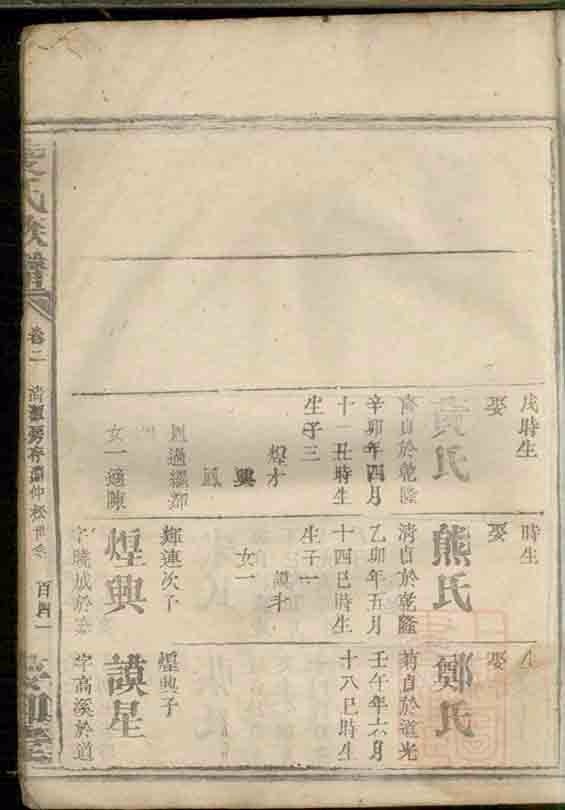 戌時生
娶
黃氏
清自於乾隆
辛卯年四月
十一丑時生
生子三
煌才
興
鳳
鳳過繼都
女一適陳
時生
娶
熊氏
清自於乾隆
乙卯年五月
十四巳時生
生子一
謨
女一
輝連次子
煌興
字曉成於
生
娶
鄭氏
前自於道光
壬午年六月
十八巳時生
煌興子
謨星
字高溪於道
氏族譜
卷二
百四一